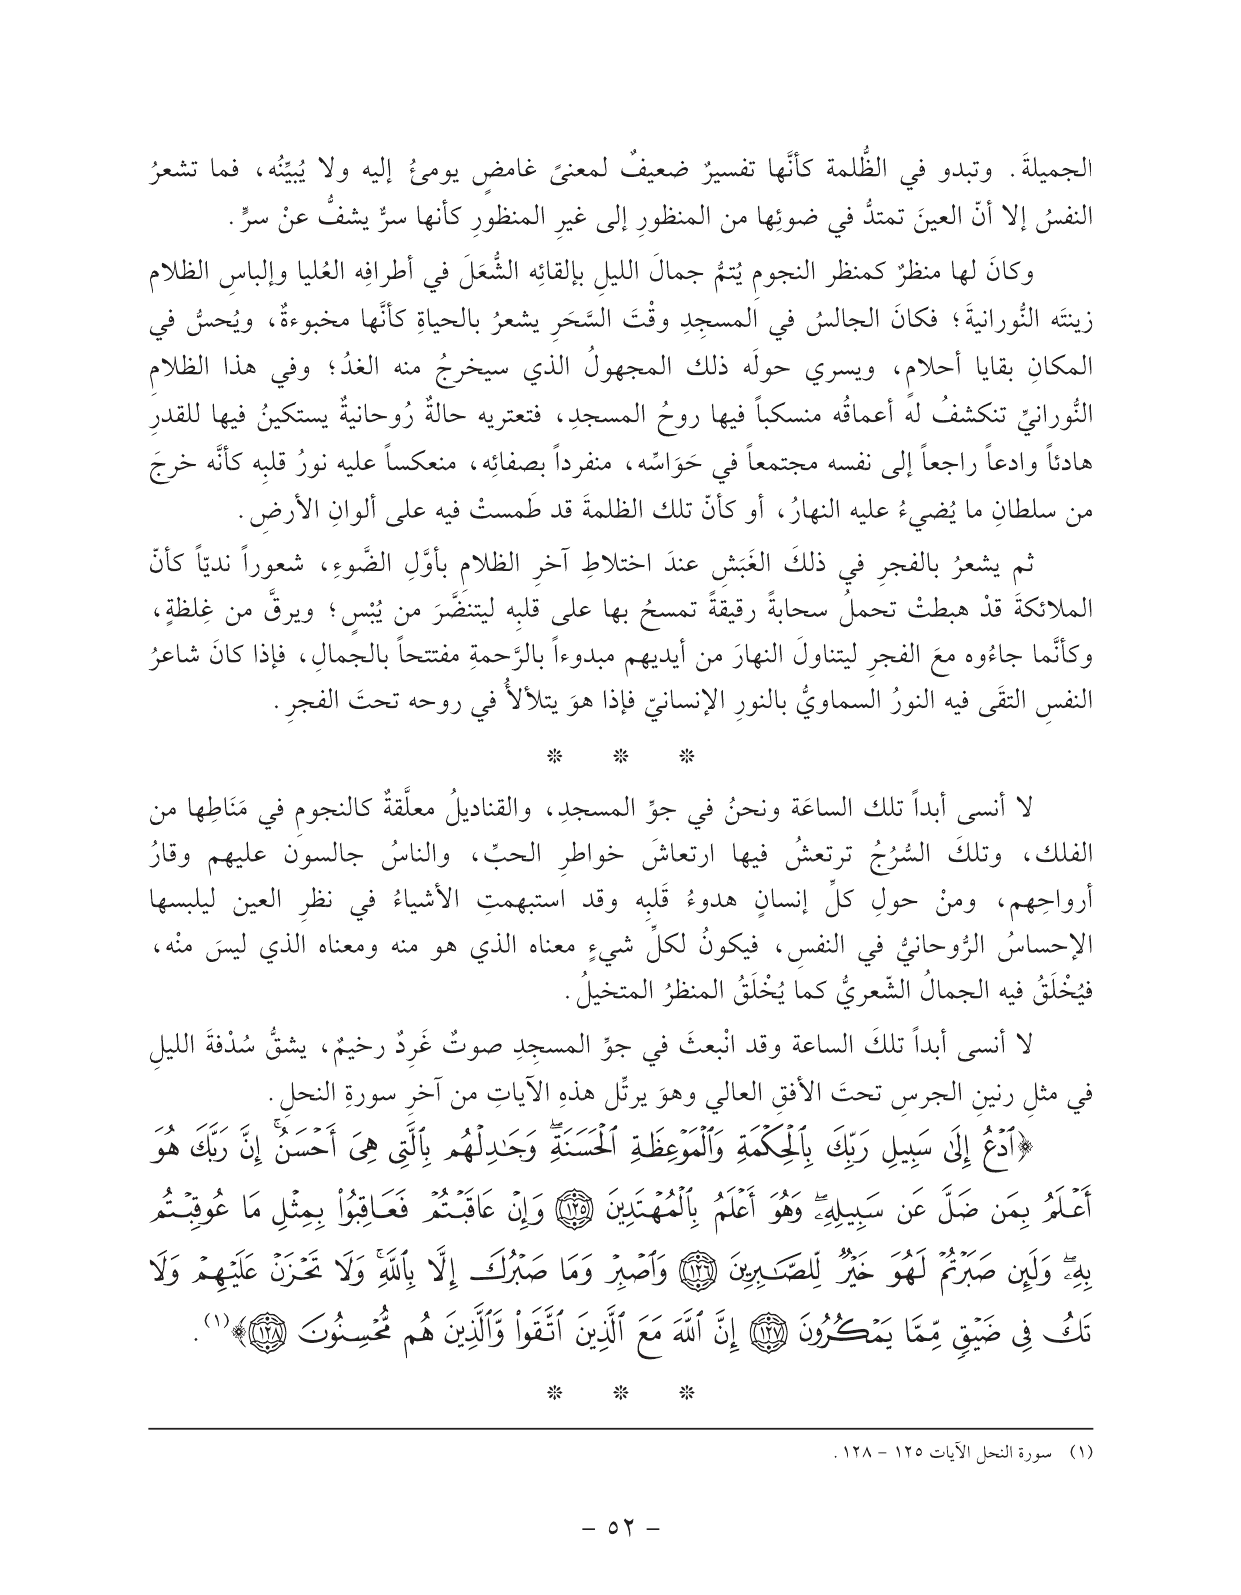 الجميلةَ. وتبدو في الظُّلمة كأنَّها تفسيرٌ ضعيفٌ لمعنىً غامضٍ يومئُ إليه ولا يُبيِّنُه، فما تشعرُ
النفسُ إلا أنّ العينَ تمتدُّ في ضوئِها من المنظورِ إلى غيرِ المنظورِ كأنها سرٌّ يشفُّ عنْ سرٍّ.
وكانَ لها منظرٌ كمنظر النجومِ يُتمُّ جمالَ الليلِ بإلقائِه الشُّعَلَ في أطرافِه العُليا وإلباسِ الظلام
زينتَه النُّورانيةَ؛ فكانَ الجالسُ في المسجِدِ وقْتَ السَّحَرِ يشعرُ بالحياةِ كأنَّها مخبوءةٌ، ويُحسُّ في
المكانِ بقايا أحلامٍ، ويسري حولَه ذلك المجهولُ الذي سيخرجُ منه الغدُ؛ وفي هذا الظلامِ
النُّورانيِّ تنكشفُ له أعماقُه منسكباً فيها روحُ المسجدِ، فتعتريه حالةٌ رُوحانيةٌ يستكينُ فيها للقدرِ
هادئاً وادعاً راجعاً إلى نفسه مجتمعاً في حَوَاسِّه، منفرداً بصفائِه، منعكساً عليه نورُ قلبِه كأنَّه خرجَ
من سلطانِ ما يُضيءُ عليه النهارُ، أو كأنّ تلك الظلمةَ قد طَمستْ فيه على ألوانِ الأرضِ.
ثم يشعرُ بالفجرِ في ذلكَ الغَبَشِ عندَ اختلاطِ آخرِ الظلامِ بأوَّلِ الضَّوءِ، شعوراً نديّاً كأنّ
الملائكةَ قدْ هبطتْ تحملُ سحابةً رقيقةً تمسحُ بها على قلبِه ليتنضَّرَ من يُبْسٍ؛ ويرقَّ من غِلظةٍ،
وكأنَّما جاءُوه معَ الفجرِ ليتناولَ النهارَ من أيديهم مبدوءاً بالرَّحمةِ مفتتحاً بالجمالِ، فإذا كانَ شاعرُ
النفسِ التقَى فيه النورُ السماويُّ بالنورِ الإنسانيّ فإذا هوَ يتلألأُ في روحه تحتَ الفجرِ.
* * *
لا أنسى أبداً تلك الساعَة ونحنُ في جوِّ المسجدِ، والقناديلُ معلَّقةٌ كالنجومِ في مَنَاطِها من
الفلك، وتلكَ السُّرُجُ ترتعشُ فيها ارتعاشَ خواطرِ الحبِّ، والناسُ جالسونَ عليهم وقارُ
أرواحِهم، ومنْ حولِ كلِّ إنسانٍ هدوءُ قَلبِه وقد استبهمتِ الأشياءُ في نظرِ العين ليلبسها
الإحساسُ الرُّوحانيُّ في النفسِ، فيكونُ لكلِّ شيءٍ معناه الذي هو منه ومعناه الذي ليسَ منْه،
فيُخْلَقُ فيه الجمالُ الشّعريُّ كما يُخْلَقُ المنظرُ المتخيلُ.
لا أنسى أبداً تلكَ الساعة وقد انْبعثَ في جوِّ المسجِدِ صوتٌ غَرِدٌ رخيمٌ، يشقُّ سُدْفةَ الليلِ
في مثلِ رنينِ الجرسِ تحتَ الأفقِ العالي وهوَ يرتِّل هذهِ الآياتِ من آخرِ سورةِ النحلِ.
﴿ٱدۡعُ إِلَىٰ سَبِيلِ رَبِّكَ بِٱلۡحِكۡمَةِ وَٱلۡمَوۡعِظَةِ ٱلۡحَسَنَةِۖ وَجَٰدِلۡهُم بِٱلَّتِي هِيَ أَحۡسَنُۚ إِنَّ رَبَّكَ هُوَ
أَعۡلَمُ بِمَن ضَلَّ عَن سَبِيلِهِۦۖ وَهُوَ أَعۡلَمُ بِٱلۡمُهۡتَدِينَ ١٢٥ وَإِنۡ عَاقَبۡتُمۡ فَعَاقِبُواْ بِمِثۡلِ مَا عُوقِبۡتُم
بِهِۦۖ وَلَئِن صَبَرۡتُمۡ لَهُوَ خَيۡرٞ لِّلصَّٰبِرِينَ ١٢٦ وَٱصۡبِرۡ وَمَا صَبۡرُكَ إِلَّا بِٱللَّهِۚ وَلَا تَحۡزَنۡ عَلَيۡهِمۡ وَلَا
تَكُ فِي ضَيۡقٖ مِّمَّا يَمۡكُرُونَ ١٢٧ إِنَّ ٱللَّهَ مَعَ ٱلَّذِينَ ٱتَّقَواْ وَّٱلَّذِينَ هُم مُّحۡسِنُونَ ١٢٨﴾(١).
* * *
(١) سورة النحل الآيات ١٢٥ - ١٢٨.
- ٥٢ -